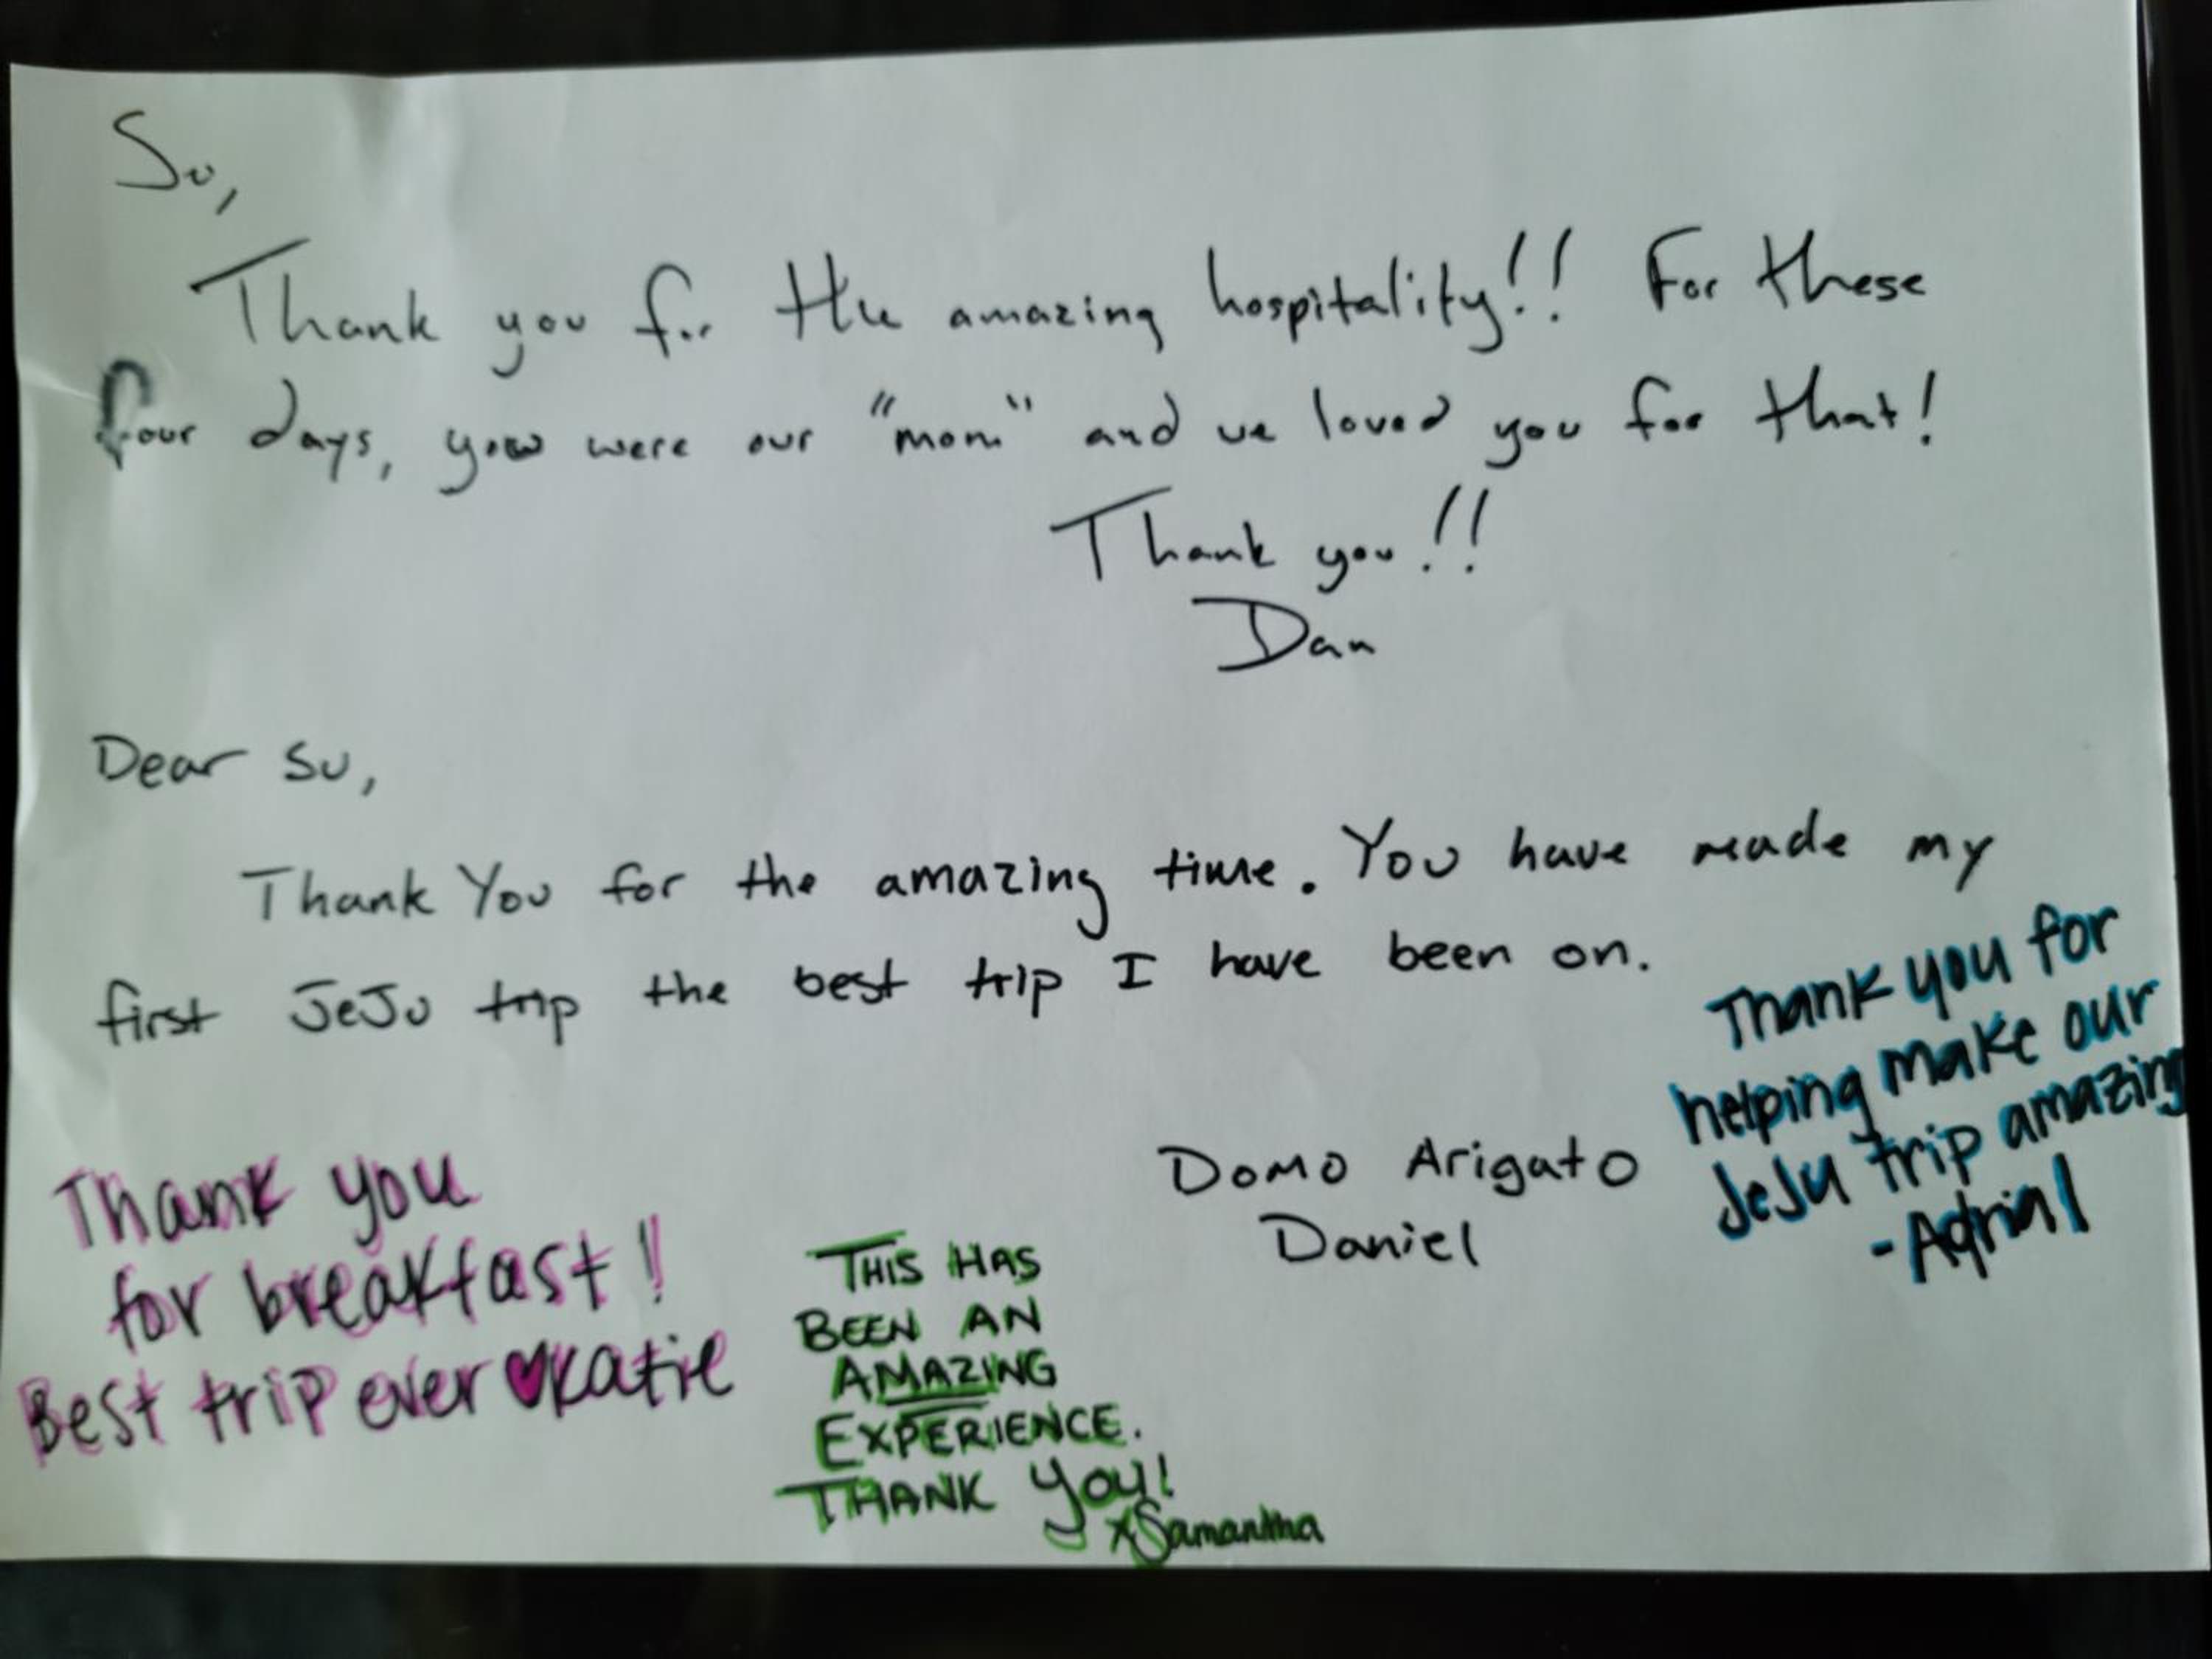 Su,
Thank you for the amazing hospitality!! For these
four days, you were our "mom" and we loved you for that!
Thank you!!
Dan
Dear Su,
Thank You for the amazing time. You have made my
first JeJu trip the best trip I have been on.
Domo Arigato
Daniel
Thank you for
helping make our
JeJu trip amazing
-
Thank you
for breakfast!
Best trip ever ♥Katie
THIS HAS
BEEN AN
AMAZING
EXPERIENCE.
THANK YOU!
xSamantha